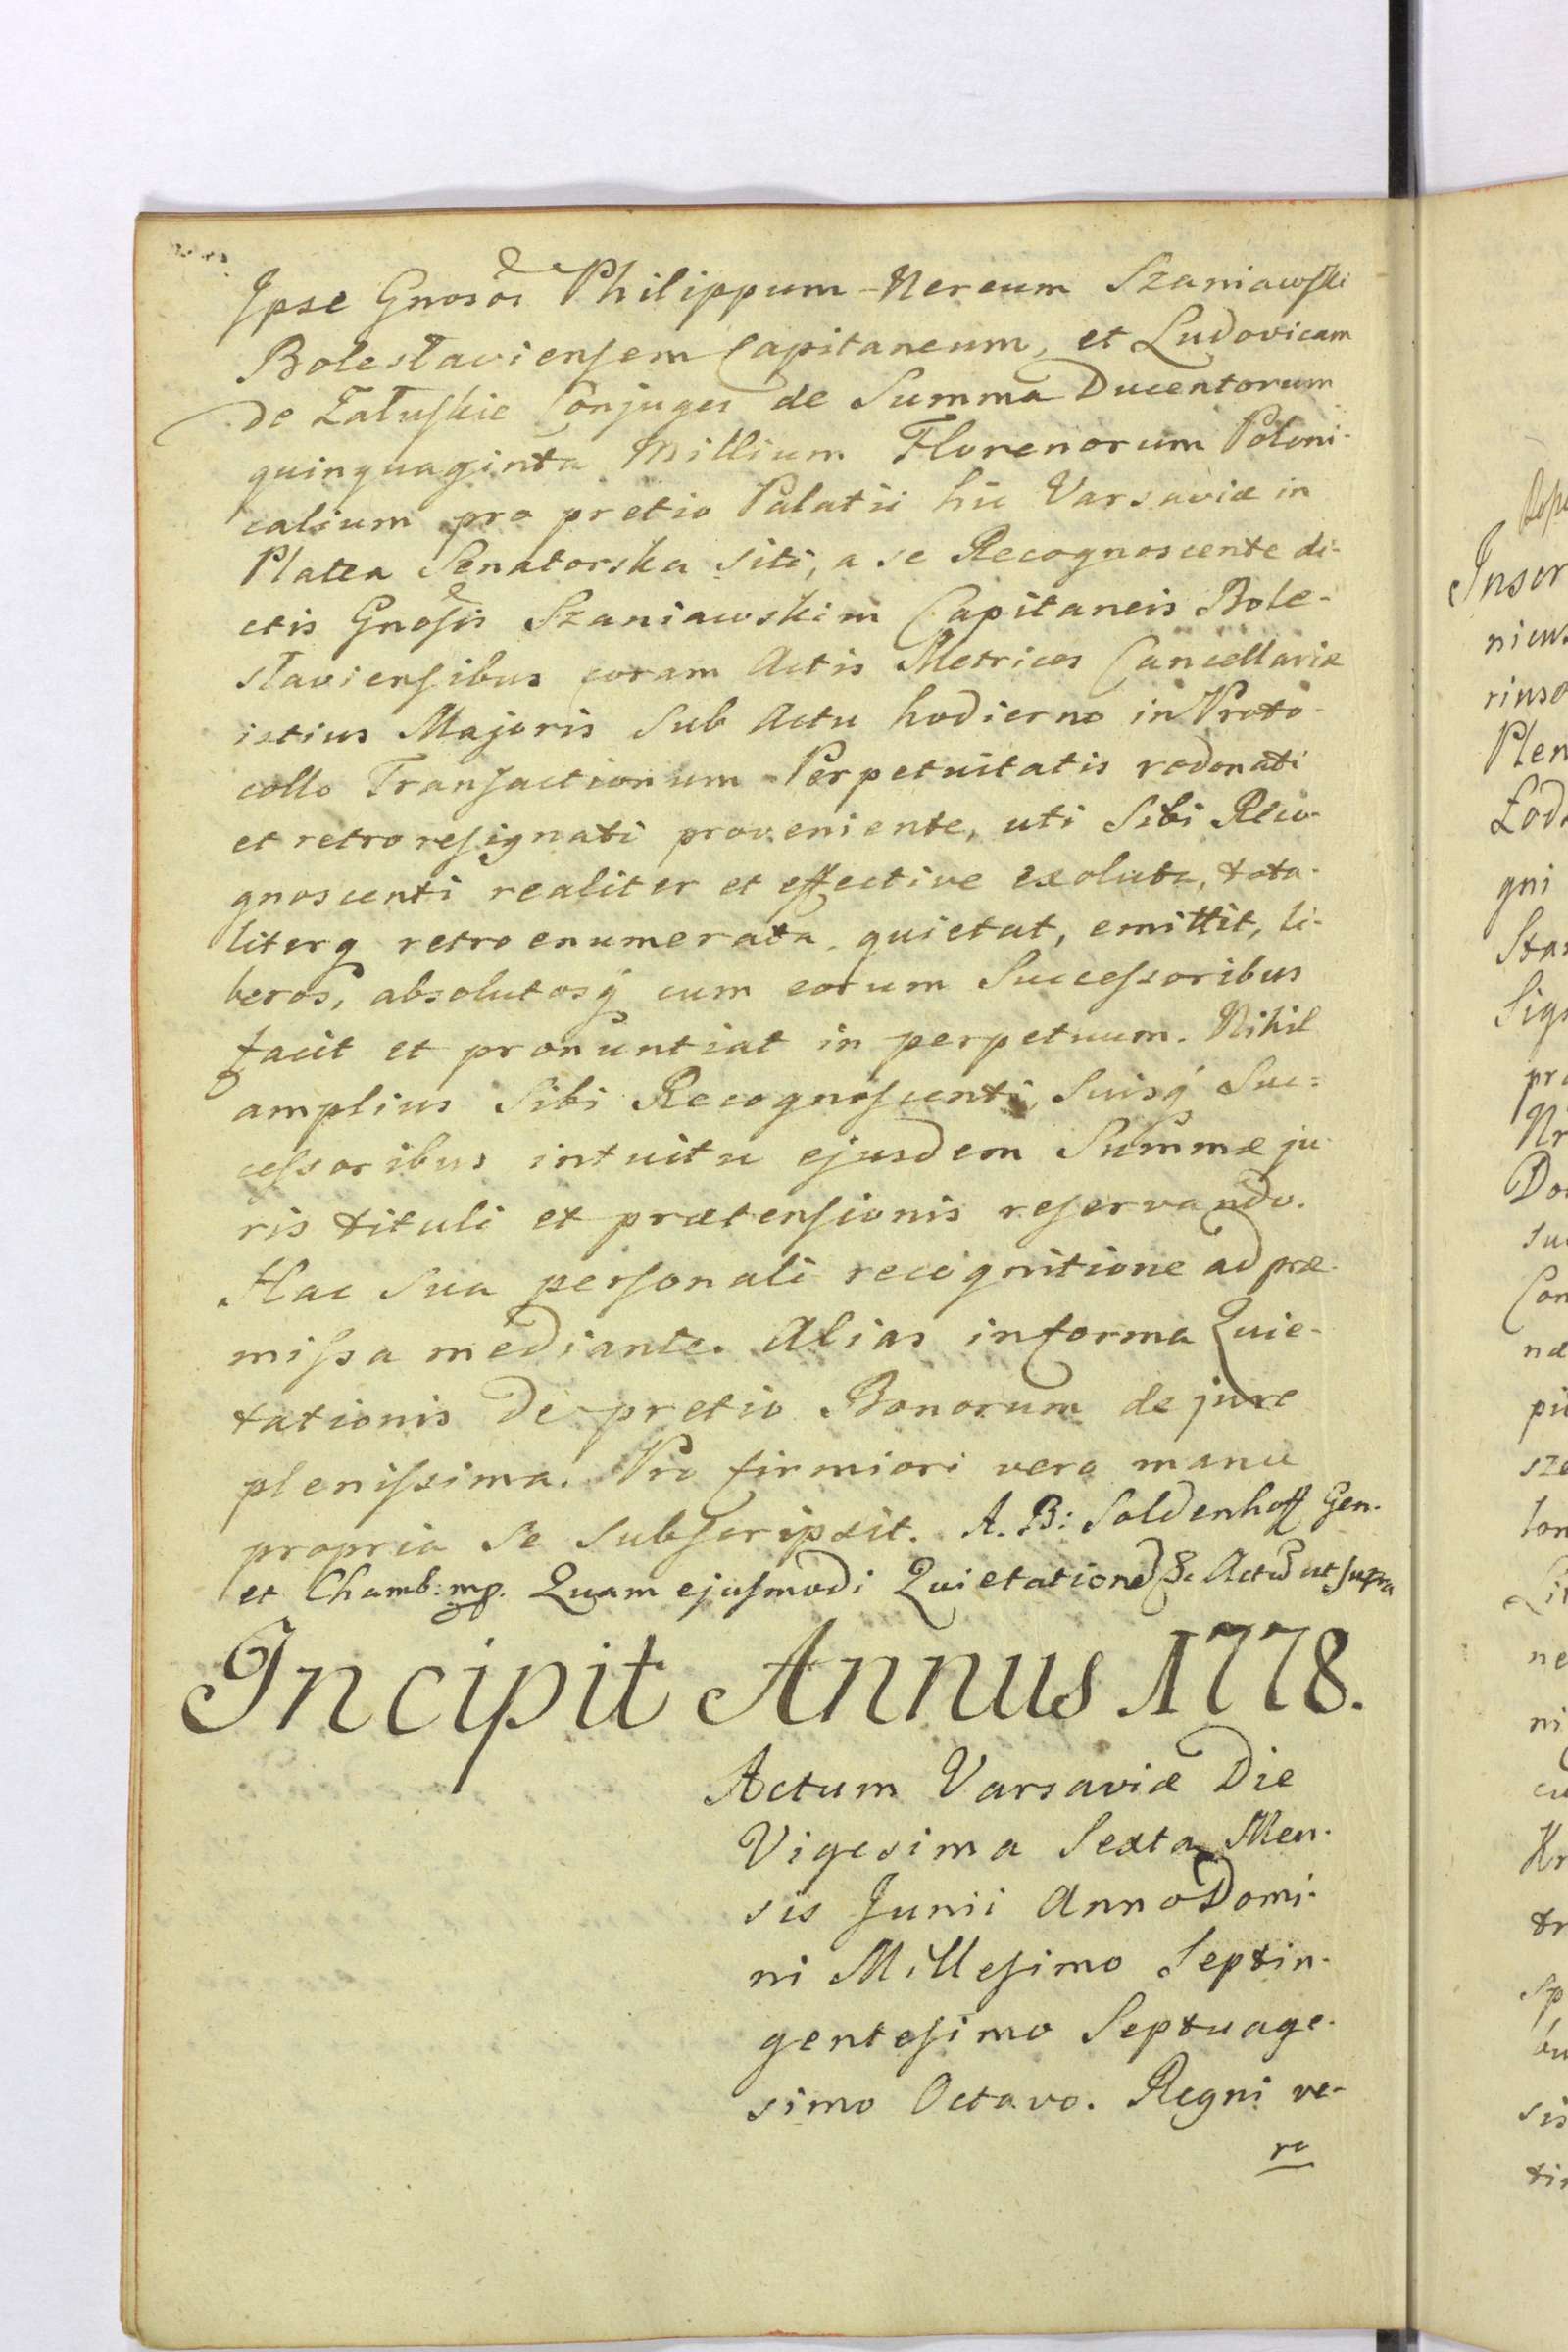 Ipse Gnosos Philippum Nereum Szaniawski
Boleslaviensem Capitaneum, et Ludovicam
de Załuskie Conjuges de Summa Ducentorum
quinquaginta Millium Florenorum Poloni-
calium pro pretio Palatii hic Varsaviæ in
Platea Senatorska siti, a se Recognoscente di-
ctis Gnosis Szaniawskim Capitaneis Bole-
slaviensibus coram Actis Metrices Cancellariæ
istius Majoris sub Actu hodierno in Proto-
collo Transactionum Perpetuitatis redonati
et retroresignati proveniente, uti Sibi Reco-
gnoscenti realiter et effective exoluta, tota-
literq retroenumerata quietat, emittit, li-
beros, absolutosq cum eorum Successoribus
facit et pronuntiat in perpetuum. Nihil
amplius Sibi Recognoscenti, Suisq Suc=
cessoribus intuitu ejusdem Summæ ju-
ris tituli et prætensionis reservando.
Hac Sua personali recognitione ad præ-
missa mediante. Alias in forma Quie-
tationis de pretio Bonorum de jure
plenissima. Pro firmiori vero manu
propria se subscripsit. A. B: Soldenhoff Gen.
et Chamb: mp. Quam ejusmodi Quietatione Actu ut supra
Incipit Annus 1778.
Actum Varsaviæ Die
Vigesima Sexta Men-
sis Junii Anno Domi-
ni Millesimo Septin-
gentesimo Septuage-
simo Octavo. Regni ve-
ro
Inser
Plen
gni